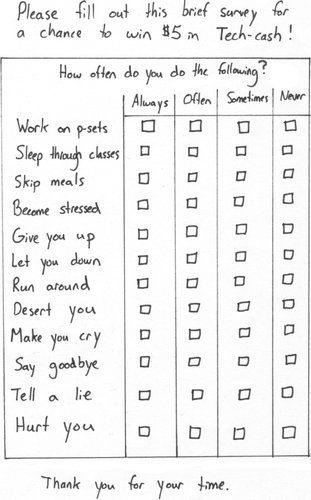 Please fill out this brief survey for
a chance to win $5 in Tech-cash!
How often do you do the following?
Always Often Sometimes Never
Work on p-sets
Sleep through classes
Skip meals
Become stressed
Give you up
Let you down
Run around
Desert you
Make you cry
Say goodbye
Tell a lie
Hurt you
Thank you for your time.